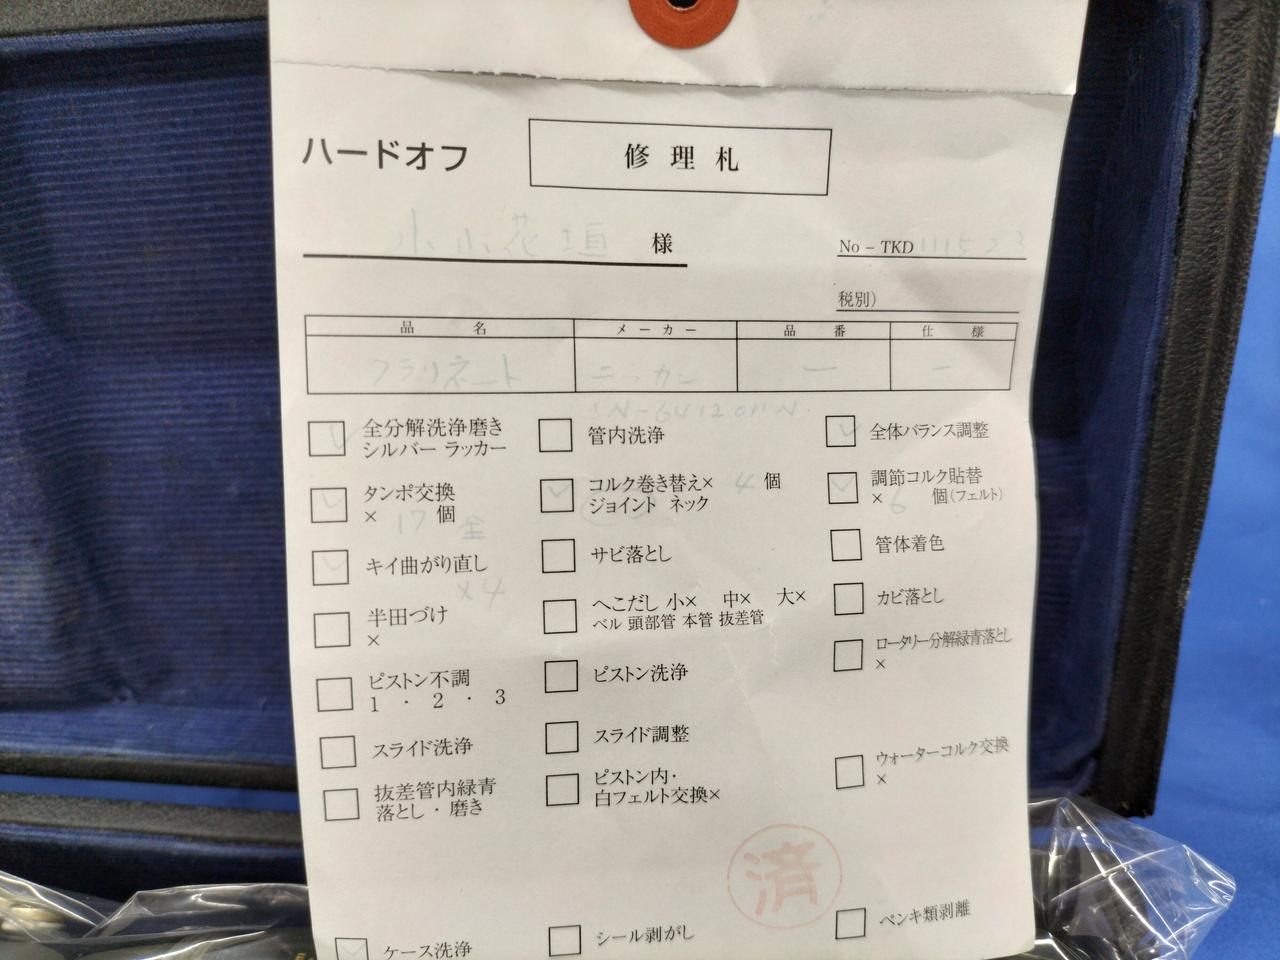 ハードオフ
修理札
小山花垣 様
No－TKD 111523
税別）
品名 メーカー 品番 仕様
クラリネート ニッカン ー ー
SN-6U12011N
全分解洗浄磨き
シルバー ラッカー
管内洗浄
全体バランス調整
タンポ交換
× 17 個
全
コルク巻き替え× 4 個
ジョイント ネック
調節コルク貼替
× 6 個(フェルト)
キイ曲がり直し
×4
サビ落とし
管体着色
半田づけ
×
へこだし 小× 中× 大×
ベル 頭部管 本管 抜差管
カビ落とし
ピストン不調
1 ・ 2 ・ 3
ピストン洗浄
ロータリー分解緑青落とし
×
スライド洗浄
スライド調整
ウォーターコルク交換
×
抜差管内緑青
落とし・磨き
ピストン内・
白フェルト交換×
済
ケース洗浄
シール剥がし
ペンキ類剥離